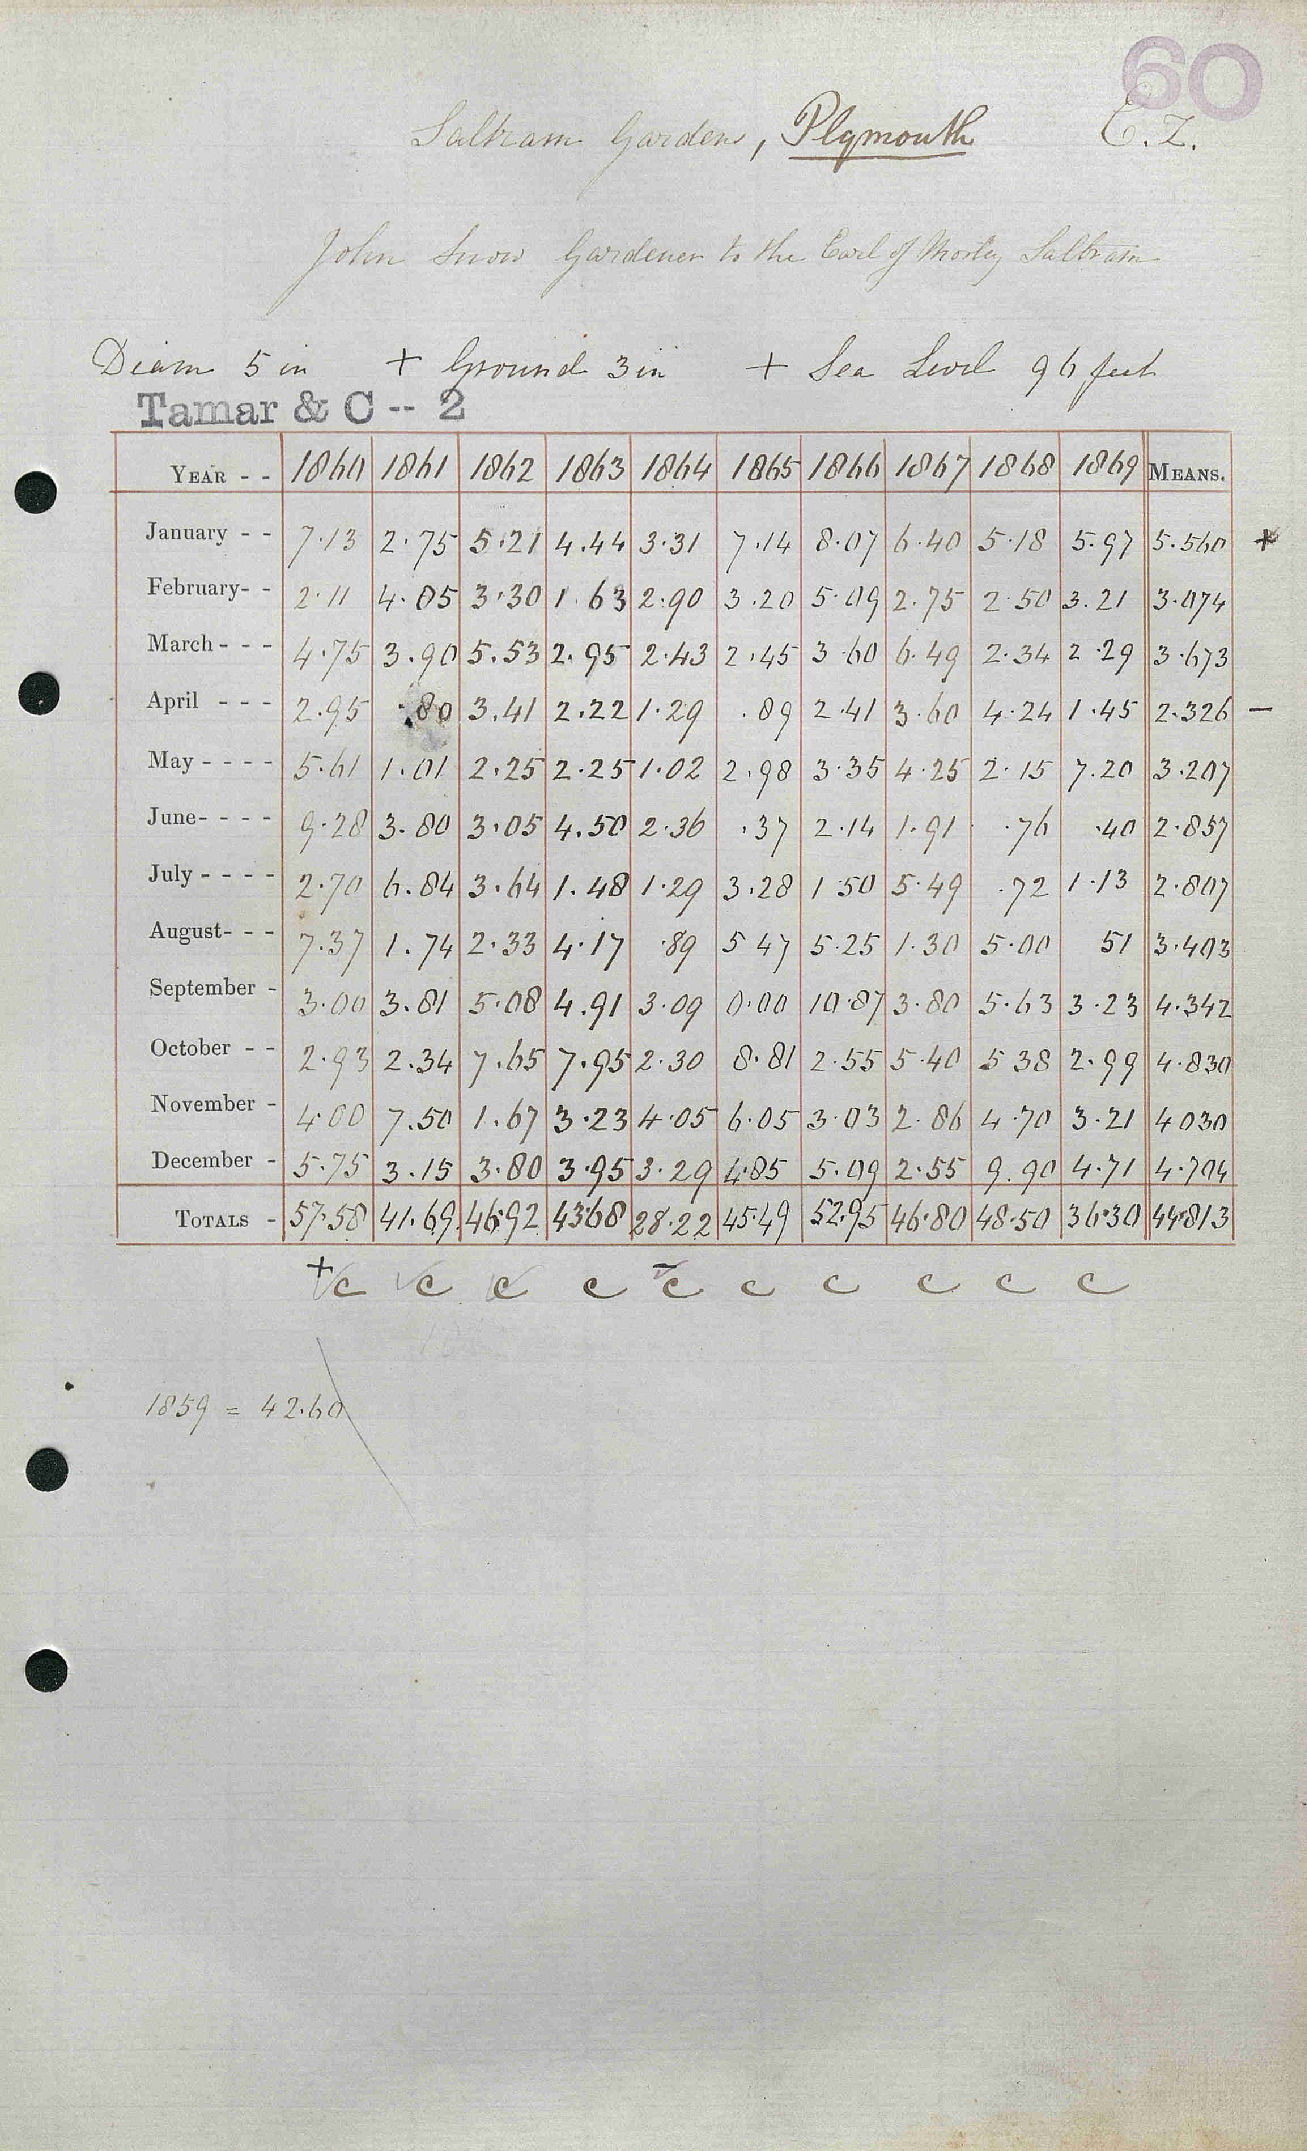 60
Saltram Gardens, Plymouth C. Z.
John Snow Gardener to the Earl of Morley Saltram
Diam 5 in + Ground 3 in + Sea Level 96 feet
Tamar & C -- 2
YEAR - - 1860 1861 1862 1863 1864 1865 1866 1867 1868 1869 MEANS.
January - - 7.13 2.75 5.21 4.44 3.31 7.14 8.07 6.40 5.18 5.97 5.560 +
February- - 2.11 4.05 3.30 1.63 2.90 3.20 5.09 2.75 2.50 3.21 3.074
March - - - 4.75 3.90 5.53 2.95 2.43 2.45 3.60 6.49 2.34 2.29 3.673
April - - - 2.95 .80 3.41 2.22 1.29 .89 2.41 3.60 4.24 1.45 2.326 —
May - - - - 5.61 1.01 2.25 2.25 1.02 2.98 3.35 4.25 2.15 7.20 3.207
June- - - - 9.28 3.80 3.05 4.50 2.36 .37 2.14 1.91 .76 .40 2.857
July - - - - 2.70 6.84 3.64 1.48 1.29 3.28 1.50 5.49 .72 1.13 2.807
August- - - 7.37 1.74 2.33 4.17 .89 5 47 5.25 1.30 5.00 51 3.403
September - 3.00 3.81 5.08 4.91 3.09 0.00 10.87 3.80 5.63 3.23 4.342
October - - 2.93 2.34 7.65 7.95 2.30 8.81 2.55 5.40 5 38 2.99 4.830
November - 4.00 7.50 1.67 3.23 4.05 6.05 3.03 2.86 4.70 3.21 4 030
December - 5.75 3.15 3.80 3.95 3.29 4.85 5.09 2.55 9.90 4.71 4.704
TOTALS - 57.58 41.69 46.92 43.68 28.22 45.49 52.95 46.80 48.50 36.30 44.813
+ c c c c - c c c c c c
1859 = 42.60